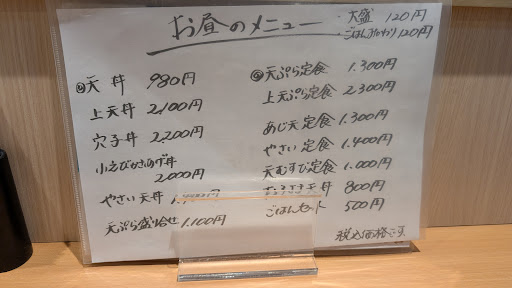 お昼のメニュー
・大盛 120円
・ごはんおかわり 120円
天丼 980円
上天丼 2,100円
穴子丼 2,200円
小えびかきあげ丼
2,000円
やさい天丼
天ぷら盛り合せ 1,100円
天ぷら定食 1,300円
上天ぷら定食 2,300円
あじ天定食 1,300円
やさい定食 1,400円
天むすび定食 1,000円
天丼 800円
ごはんセット 500円
税込価格です